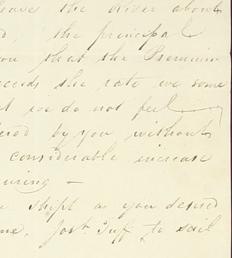 leave the order about
the principal
you that the Premium
exceeds the rate we some
we do not feel
by you without
considerable increase
uring —
shipt as you desired
Josh Tuff to sail